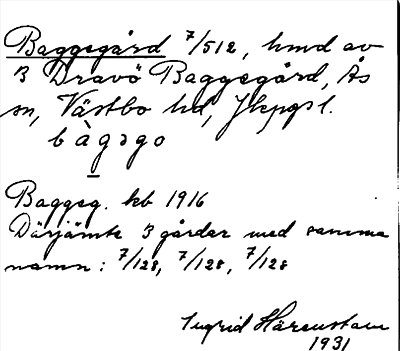 Baggegård 7/512, hmd av
3 Dravö Baggegård, Ås
sn, Västbo hd, Jkpgs l.
bàgəgo
Baggeg. kb 1916
Därjämte 3 gårder med samma
namn: 7/128, 7/128, 7/128
Ingrid Härenstam
1931